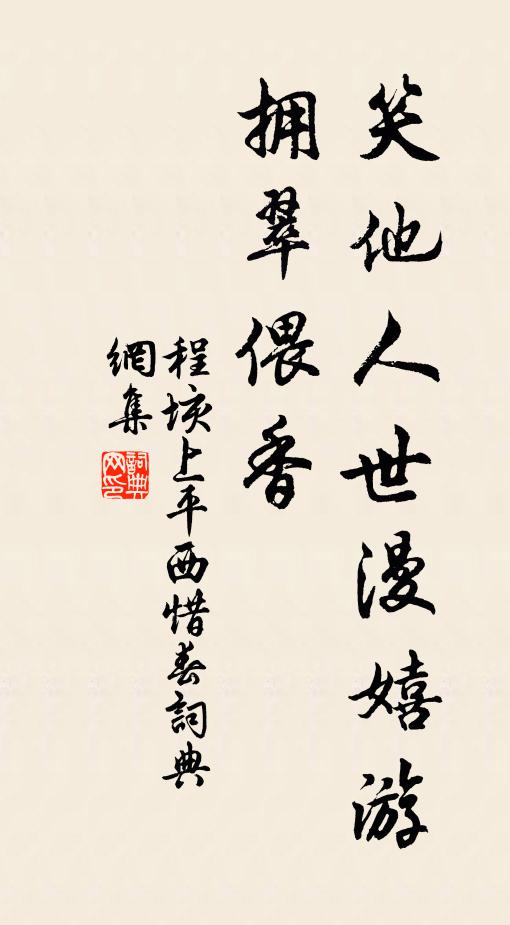 笑他人世漫嬉游
拥翠偎香
程垓上平西惜春詞典
網集
詞典网印